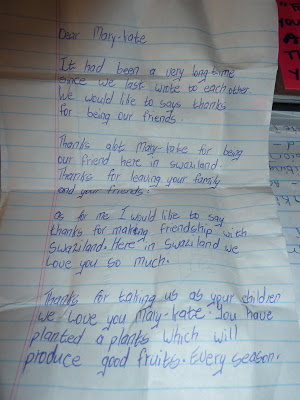 Dear Mary-kate
It had been a very long time
since we last wrote to each other
we would like to says thanks
for being our friends.
Thanks alot Mary-kate for being
our friend here in swaziland.
Thanks for leaving your family
and your friends.
as for me I would like to say
thanks for making friendship with
swaziland. Here in swaziland we
Love you so much.
Thanks for taking us as your children
we Love you Mary-kate. You have
planted a plants which will
produce good fruits. Every season.